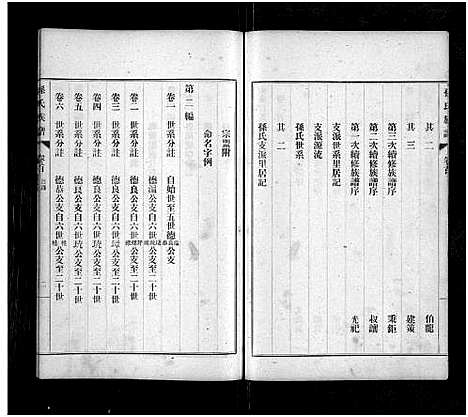 孫氏族譜
其二 伯龍
其三 建策
第三次續修族譜序 秉鉅
第二次續修族譜序 叔讓
第一次續修族譜序 光祀
支派世系里居記
支派源流
孫氏世系
其二
孫氏支派里居記
宗盟附
命名字例
第二編
卷一 自始世至五世德公支
卷二 世系分註 德溫公支自六世
卷三 世系分註 德良公支自六世琦公支至二十世
卷四 世系分註 德良公支自六世 公支至二十世
卷五 世系分註 德良公支自六世琦公支至二十世
卷六 世系分註 德恭公支自六世 公支至二十世
孫氏族譜 卷首